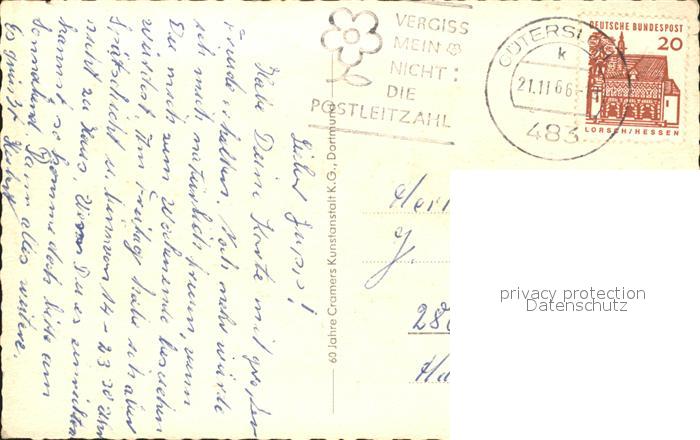 VERGISS
MEIN
NICHT:
DIE
POSTLEITZAHL
GÜTERSL
k
21.11.66
483
DEUTSCHE BUNDESPOST
20
LORSCH/HESSEN
60 Jahre Cramers Kunstanstalt K.G., Dortmund
Lieber Jupp!
Habe Deine Karte mit großer
Freude erhalten. Ich würde
ich mich natürlich freuen, wenn
Du mich zum Wochenende besuchen
würdest. Am Freitag habe ich aber
Spätschicht 14 - 23 30 Uhr
nicht zu Haus. Wenn Du es
kannst so komme doch bitte am
Sonnabend alles weitere.
Es grüßt
Herr
J.
28
Ha
privacy protection
Datenschutz